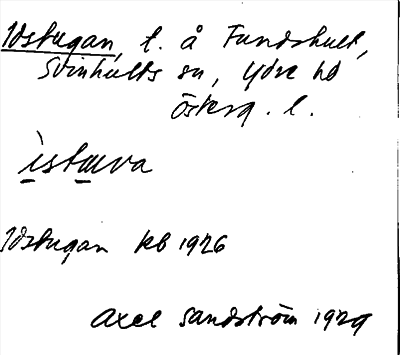 Idstugan, t. å Fundshult,
Svinhults sn, Ydre hd
Österg. l.
ìstæva
Idstugan kb 1926
Axel Sandström 1929